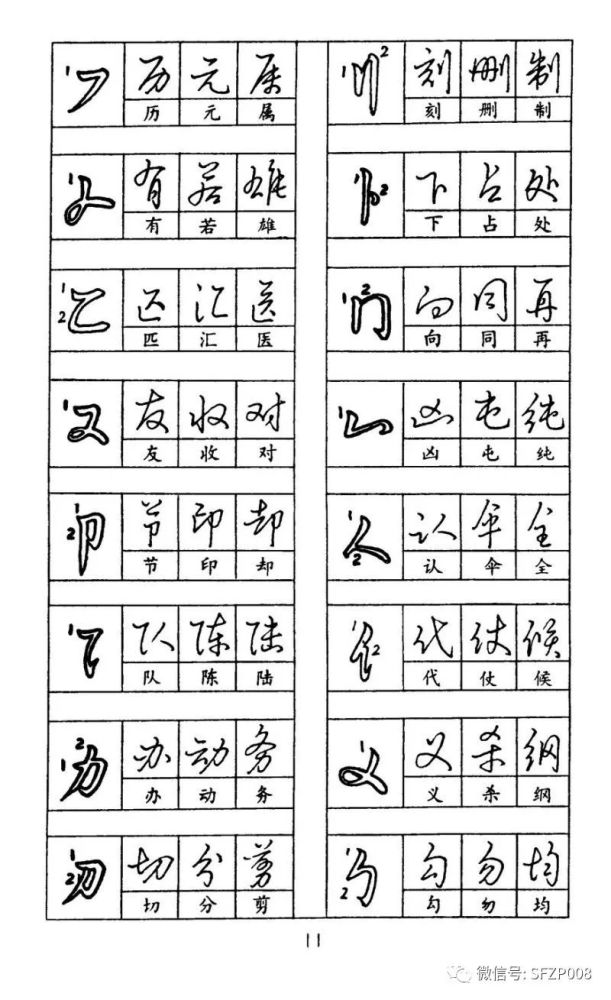 1 历 元 属 1 2 刻 删 制
历 元 属 刻 删 制
1 有 若 雄 1 2 下 占 处
有 若 雄 下 占 处
1 2 匹 汇 医 1 2 向 同 再
匹 汇 医 向 同 再
1 又 友 收 对 1 凶 屯 纯
友 收 对 凶 屯 纯
1 2 卩 节 印 却 1 2 人 认 伞 全
节 印 却 认 伞 全
1 队 陈 陆 1 2 代 仗 候
队 陈 陆 代 仗 候
1 2 力 办 动 务 1 义 杀 纲
办 动 务 义 杀 纲
1 2 切 分 剪 1 2 勾 勿 均
切 分 剪 勾 勿 均
11
微信号: SFZP008